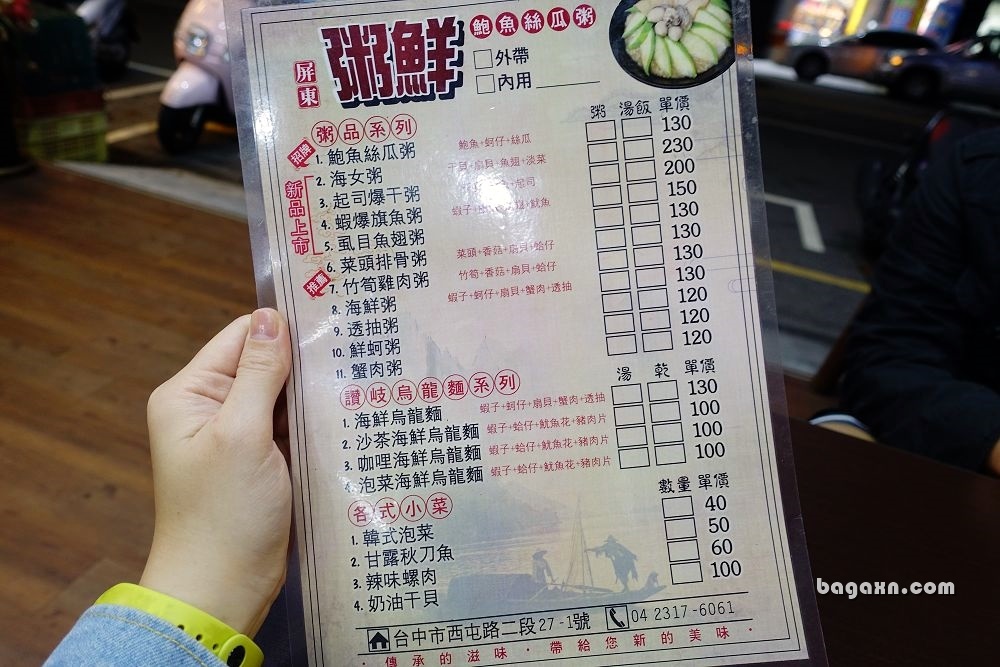 屏東 粥鮮 鮑魚絲瓜粥
外帶
內用
粥品系列 粥 湯飯 單價
招牌 1. 鮑魚絲瓜粥 鮑魚+蚵仔+絲瓜 130
新品上市
2. 海女粥 干貝+扇貝+魚翅+淡菜 230
3. 起司爆干粥 +起司 200
4. 蝦爆旗魚粥 蝦子+ +魷魚 150
5. 虱目魚翅粥 130
6. 菜頭排骨粥 菜頭+香菇+扇貝+蛤仔 130
推薦 7. 竹筍雞肉粥 竹筍+香菇+扇貝+蛤仔 130
8. 海鮮粥 蝦子+蚵仔+扇貝+蟹肉+透抽 130
9. 透抽粥 120
10. 鮮蚵粥 120
11. 蟹肉粥 120
讚岐烏龍麵系列 湯 乾 單價
1. 海鮮烏龍麵 蝦子+蚵仔+扇貝+蟹肉+透抽 130
2. 沙茶海鮮烏龍麵 蝦子+蛤仔+魷魚花+豬肉片 100
3. 咖哩海鮮烏龍麵 蝦子+蛤仔+魷魚花+豬肉片 100
4. 泡菜海鮮烏龍麵 蝦子+蛤仔+魷魚花+豬肉片 100
各式小菜 數量 單價
1. 韓式泡菜 40
2. 甘露秋刀魚 50
3. 辣味螺肉 60
4. 奶油干貝 100
台中市西屯路二段27-1號 04 2317-6061
·傳承的滋味·帶給您新的美味·
bagaxn.com